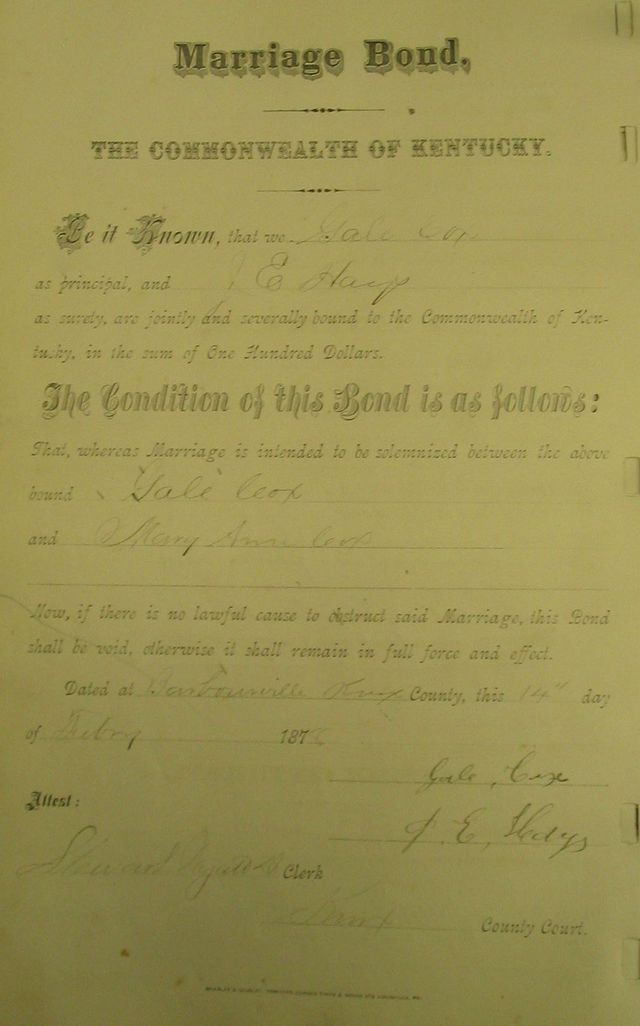 Marriage Bond.
THE COMMONWEALTH OF KENTUCKY.
Be it Known, that we Gale Cox
as principal, and J E Hays
as surety, are jointly and severally bound to the Commonwealth of Ken-
tucky, in the sum of One Hundred Dollars.
The Condition of this Bond is as follows:
That, whereas Marriage is intended to be solemnized between the above
bound Gale Cox
and Mary Ann Cox
Now, if there is no lawful cause to obstruct said Marriage, this Bond
shall be void, otherwise it shall remain in full force and effect.
Dated at Barbourville Knox County, this 14" day
of Febry 187
Gale Cox
J. E. Hays
Attest:
Clerk
Knox County Court.